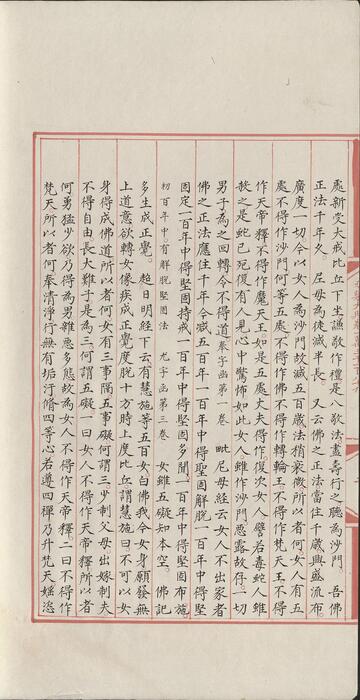 處新受大戒比丘下坐謙敬作禮是八敬法盡壽行之聽為沙門吾佛
正法千年久尼母為徒減半長又云佛之正法當住千歲興盛流布
廣度一切今以女人為沙門故減五百歲法稍衰微所以者何女人有五
處不得作沙門何等五處不得作佛不得作轉輪王不得作梵天王不得
作天帝釋不得作魔天王如是五處丈夫得作復次女人譬若毒蛇人雖
殺之是蛇已死復有人見心中驚怖如此女人雖作沙門惡露故存一切
男子為之回轉令不得道奉字函第一卷毗尼母經云女人不出家者
佛之正法應住千年今減五百年一百年中得堅固解脫一百年中得堅
固定一百年中得堅固持戒一百年中得堅固多聞一百年中得堅固布施
初百年中有解脫堅固法尤字函第三卷女雖五礙知本空佛記
多生成正覺超日明經下云有慧施等五百女白佛我今女身願發無
上道意欲轉女像疾成正覺度脫十方時上度比丘謂慧施曰不可以女
身得成佛道所以者何女有三事隔五事礙何謂三少制父母出嫁制夫
不得自由長大難子是為三何謂五礙一曰女人不得作天帝釋所以者
何勇猛少欲乃得為男雜惡多態故為女人不得作天帝釋二曰不得作
梵天所以者何奉清淨行無有垢汙修四等心若遵四禪乃升梵天婬恣